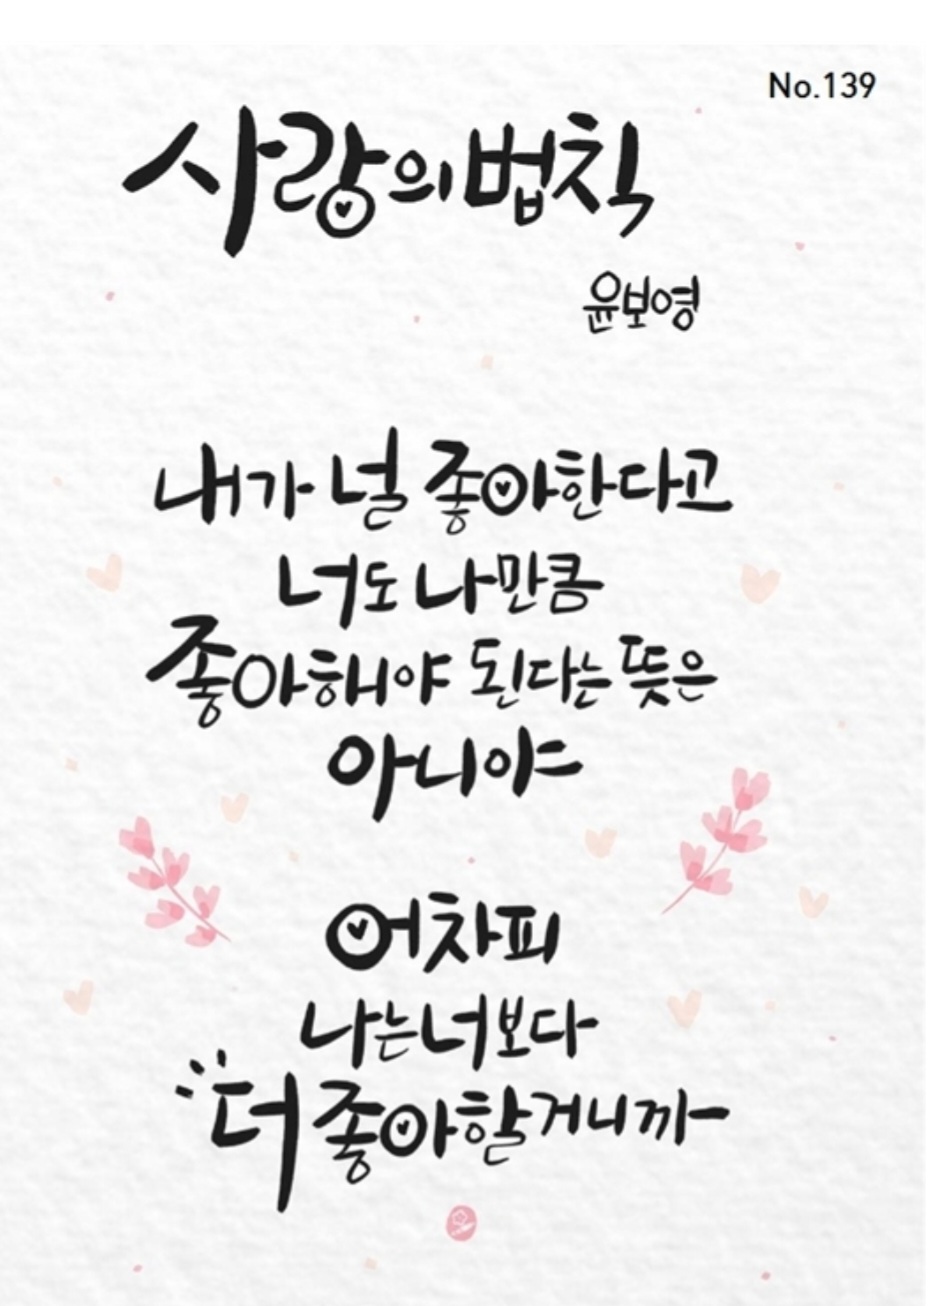 No.139
사랑의 법칙
윤보영
내가 널 좋아한다고
너도 나만큼
좋아해야 된다는 뜻은
아니야
어차피
나는 너보다
더 좋아할거니까